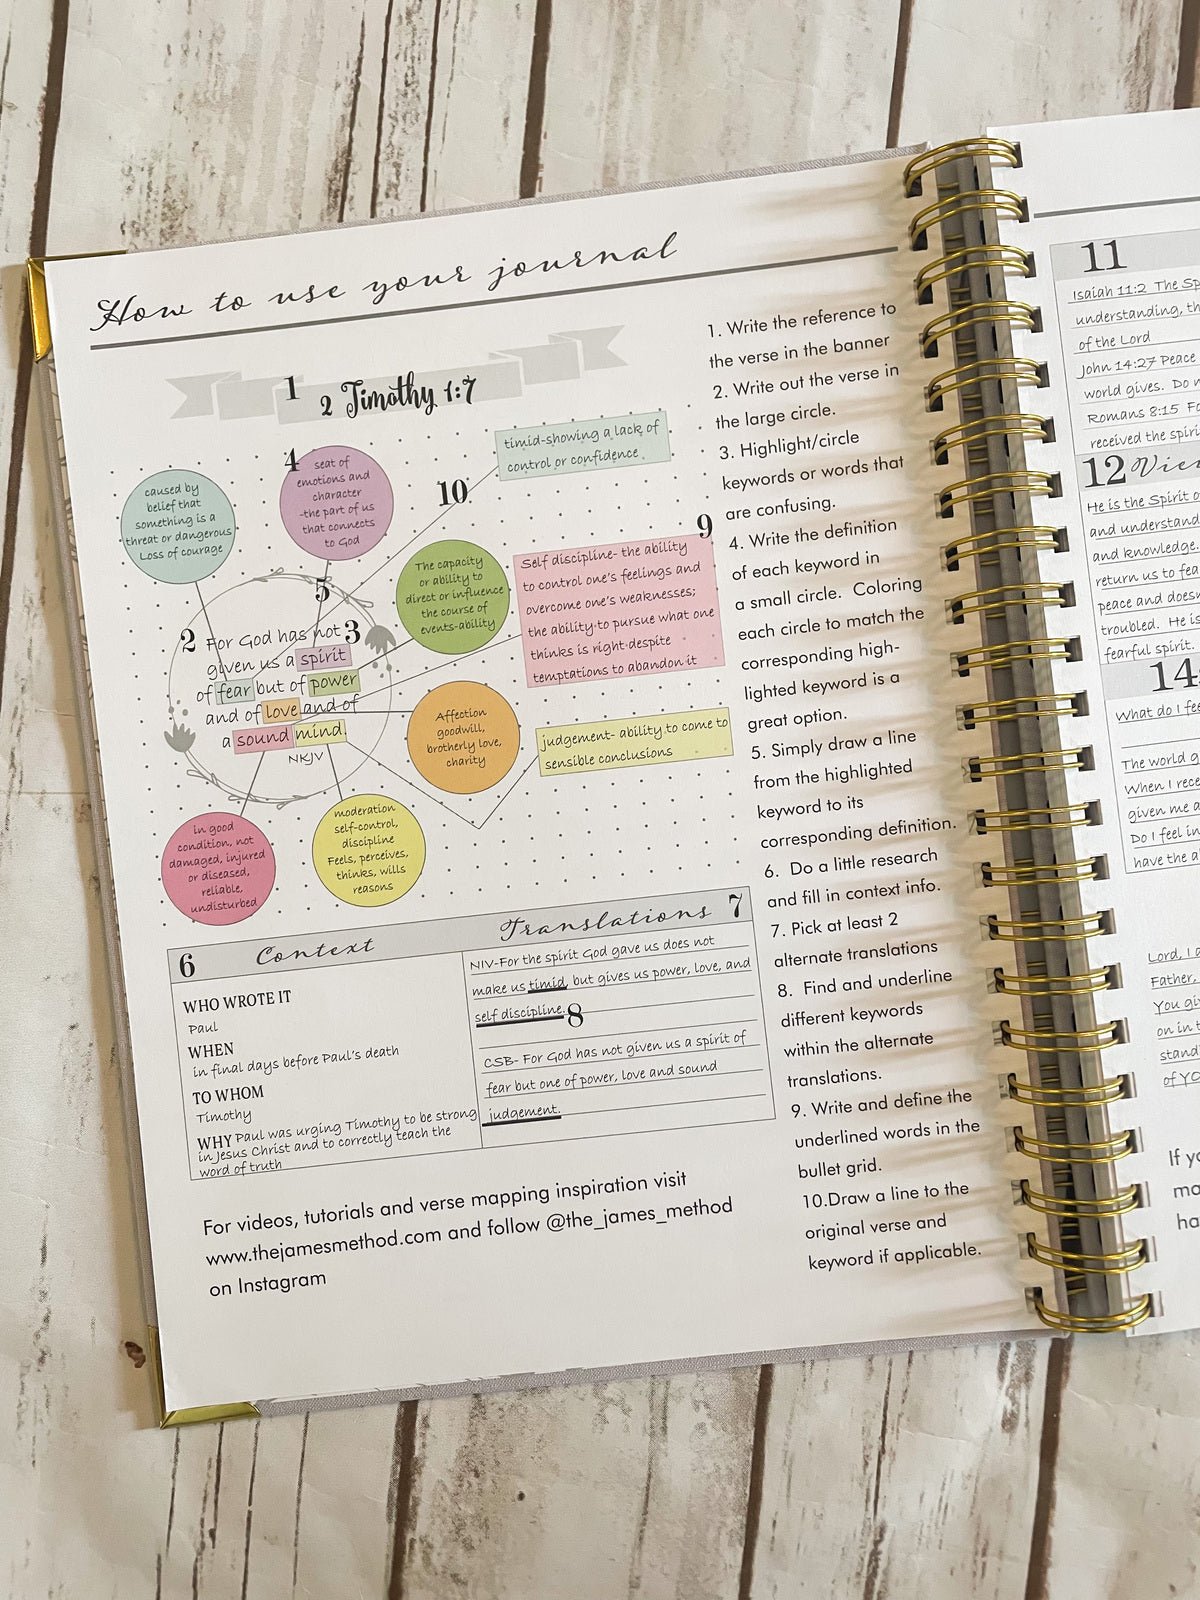 How to use your journal
1
2 Timothy 1:7
caused by
belief that
something is a
threat or dangerous
Loss of courage
4
seat of
emotions and
character
-the part of us
that connects
to God
timid-showing a lack of
control or confidence
10
The capacity
or ability to
direct or influence
the course of
events-ability
9
Self discipline- the ability
to control one's feelings and
overcome one's weaknesses;
the ability to pursue what one
thinks is right despite
temptations to abandon it
5
2 For God has not 3
given us a spirit
of fear but of power
and of love and of
a sound mind.
NKJV
Affection
goodwill,
brotherly love,
charity
judgement- ability to come to
sensible conclusions
in good
condition, not
damaged, injured
or diseased,
reliable,
undisturbed
moderation
self-control,
discipline
Feels, perceives,
thinks, wills
reasons
6 Context
WHO WROTE IT
Paul
WHEN
in final days before Paul's death
TO WHOM
Timothy
WHY Paul was urging Timothy to be strong
in Jesus Christ and to correctly teach the
word of truth
Translations 7
NIV-For the spirit God gave us does not
make us timid, but gives us power, love, and
self discipline. 8
CSB- For God has not given us a spirit of
fear but one of power, love and sound
judgement.
For videos, tutorials and verse mapping inspiration visit
www.thejamesmethod.com and follow @the_james_method
on Instagram
1. Write the reference to
the verse in the banner
2. Write out the verse in
the large circle.
3. Highlight/circle
keywords or words that
are confusing.
4. Write the definition
of each keyword in
a small circle. Coloring
each circle to match the
corresponding high-
lighted keyword is a
great option.
5. Simply draw a line
from the highlighted
keyword to its
corresponding definition.
6. Do a little research
and fill in context info.
7. Pick at least 2
alternate translations
8. Find and underline
different keywords
within the alternate
translations.
9. Write and define the
underlined words in the
bullet grid.
10.Draw a line to the
original verse and
keyword if applicable.
11
Isaiah 11:2 The
understanding,
of the Lord
John 14:27 Peace
world gives. Do
Romans 8:15
received the
12
He is the Spirit
and understand
and knowledge.
return us to
peace and
troubled. He is
fearful spirit.
14
What do I
The world
When I
given me
Do I feel in
have the
Lord, I
Father,
You
on in
of
If